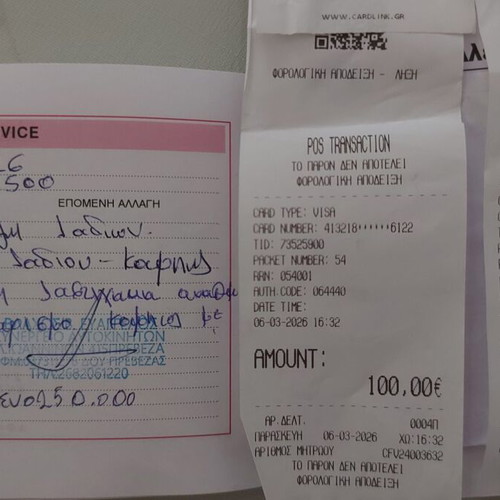 VICE
500
ΕΠΟΜΕΝΗ ΑΛΛΑΓΗ
λαδιων.
λαδιου - καφης
ΤΗΛ.2682061220
250.000
WWW.CARDLINK.GR
ΦΟΡΟΛΟΓΙΚΗ ΑΠΟΔΕΙΞΗ - ΛΗΞΗ
POS TRANSACTION
ΤΟ ΠΑΡΟΝ ΔΕΝ ΑΠΟΤΕΛΕΙ
ΦΟΡΟΛΟΓΙΚΗ ΑΠΟΔΕΙΞΗ
CARD TYPE: VISA
CARD NUMBER: 413218******6122
TID: 73525900
PACKET NUMBER: 54
RRN: 054001
AUTH.CODE: 064440
DATE TIME:
06-03-2026 16:32
AMOUNT:
100,00€
ΑΡ.ΔΕΛΤ. 0004Π
ΠΑΡΑΣΚΕΥΗ 06-03-2026 ΧΩ:16:32
ΑΡΙΘΜΟΣ ΜΗΤΡΩΟΥ CFV24003632
ΤΟ ΠΑΡΟΝ ΔΕΝ ΑΠΟΤΕΛΕΙ
ΦΟΡΟΛΟΓΙΚΗ ΑΠΟΔΕΙΞΗ